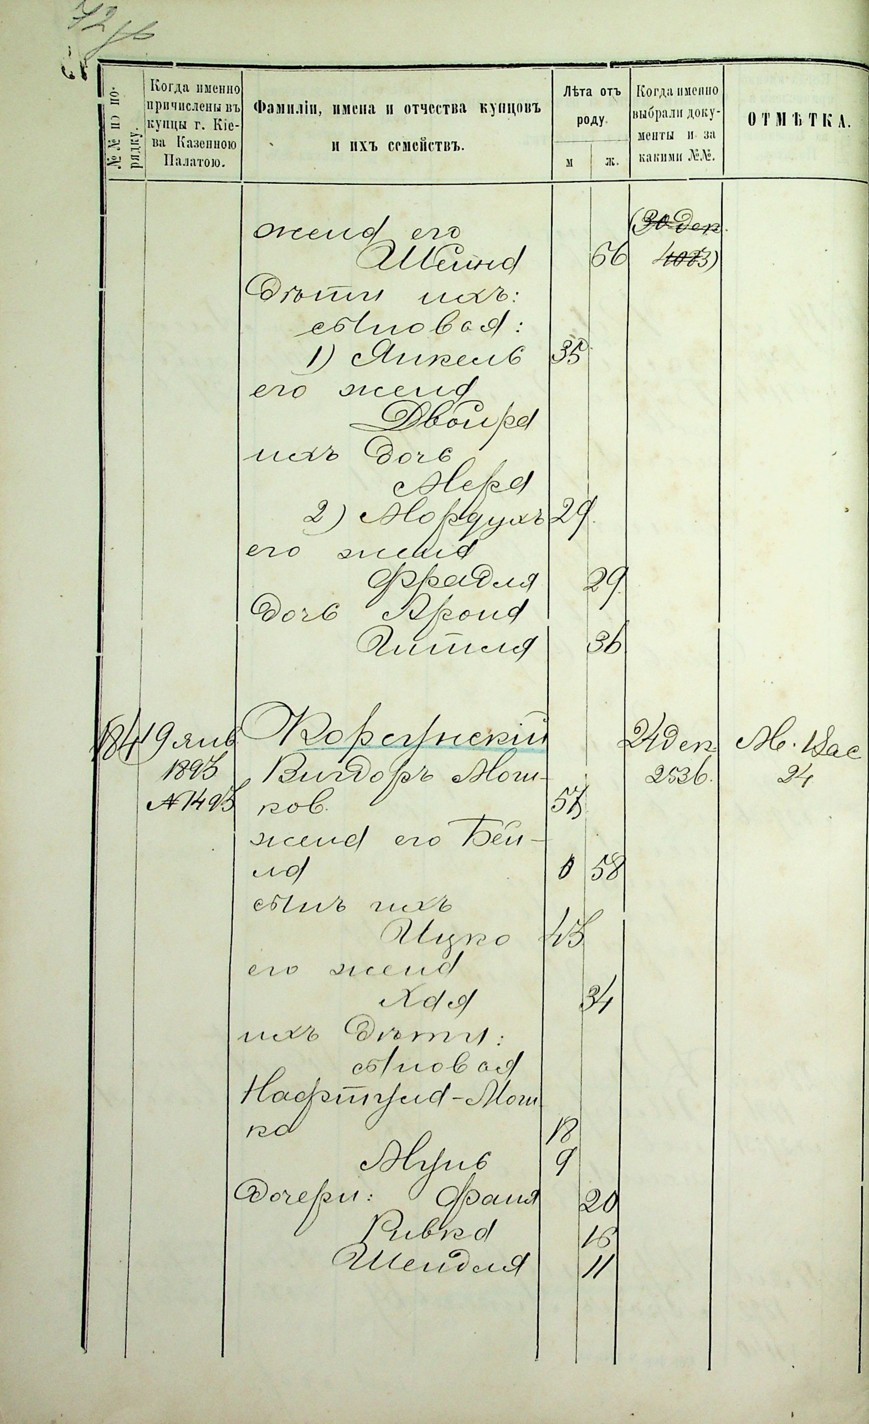 №№ по порядку.
Когда именно причислены въ купцы г. Кіева Казенною Палатою.
Фамиліи, имена и отчества купцовъ и ихъ семействъ.
Лѣта отъ роду.
м
ж.
Когда именно выбрали документы и за какими №№.
ОТМѢТКА.
жена его (30 дек.
Шейна 66
Дѣти ихъ:
сыновья:
1) Янкель 35
его жена
Двойра
ихъ дочь
Мера
2) Мордухъ 29.
его жена
Фрадля 29.
дочь Арона
Гитля 36
184 19 янв. Корсунскій 24 дек. М. Вас
1893 Вигдоръ Мош- 2536. 24
№ 1493 ков.
жена его Бей-
ла 58
сынъ ихъ
Ицко 43
его жена
Хая 34
ихъ дѣти:
сыновья
Нафтула-Мош-
ка 18
Мунь 9
Дочери: Фаня 20
Ривка 16
Шейндля 11